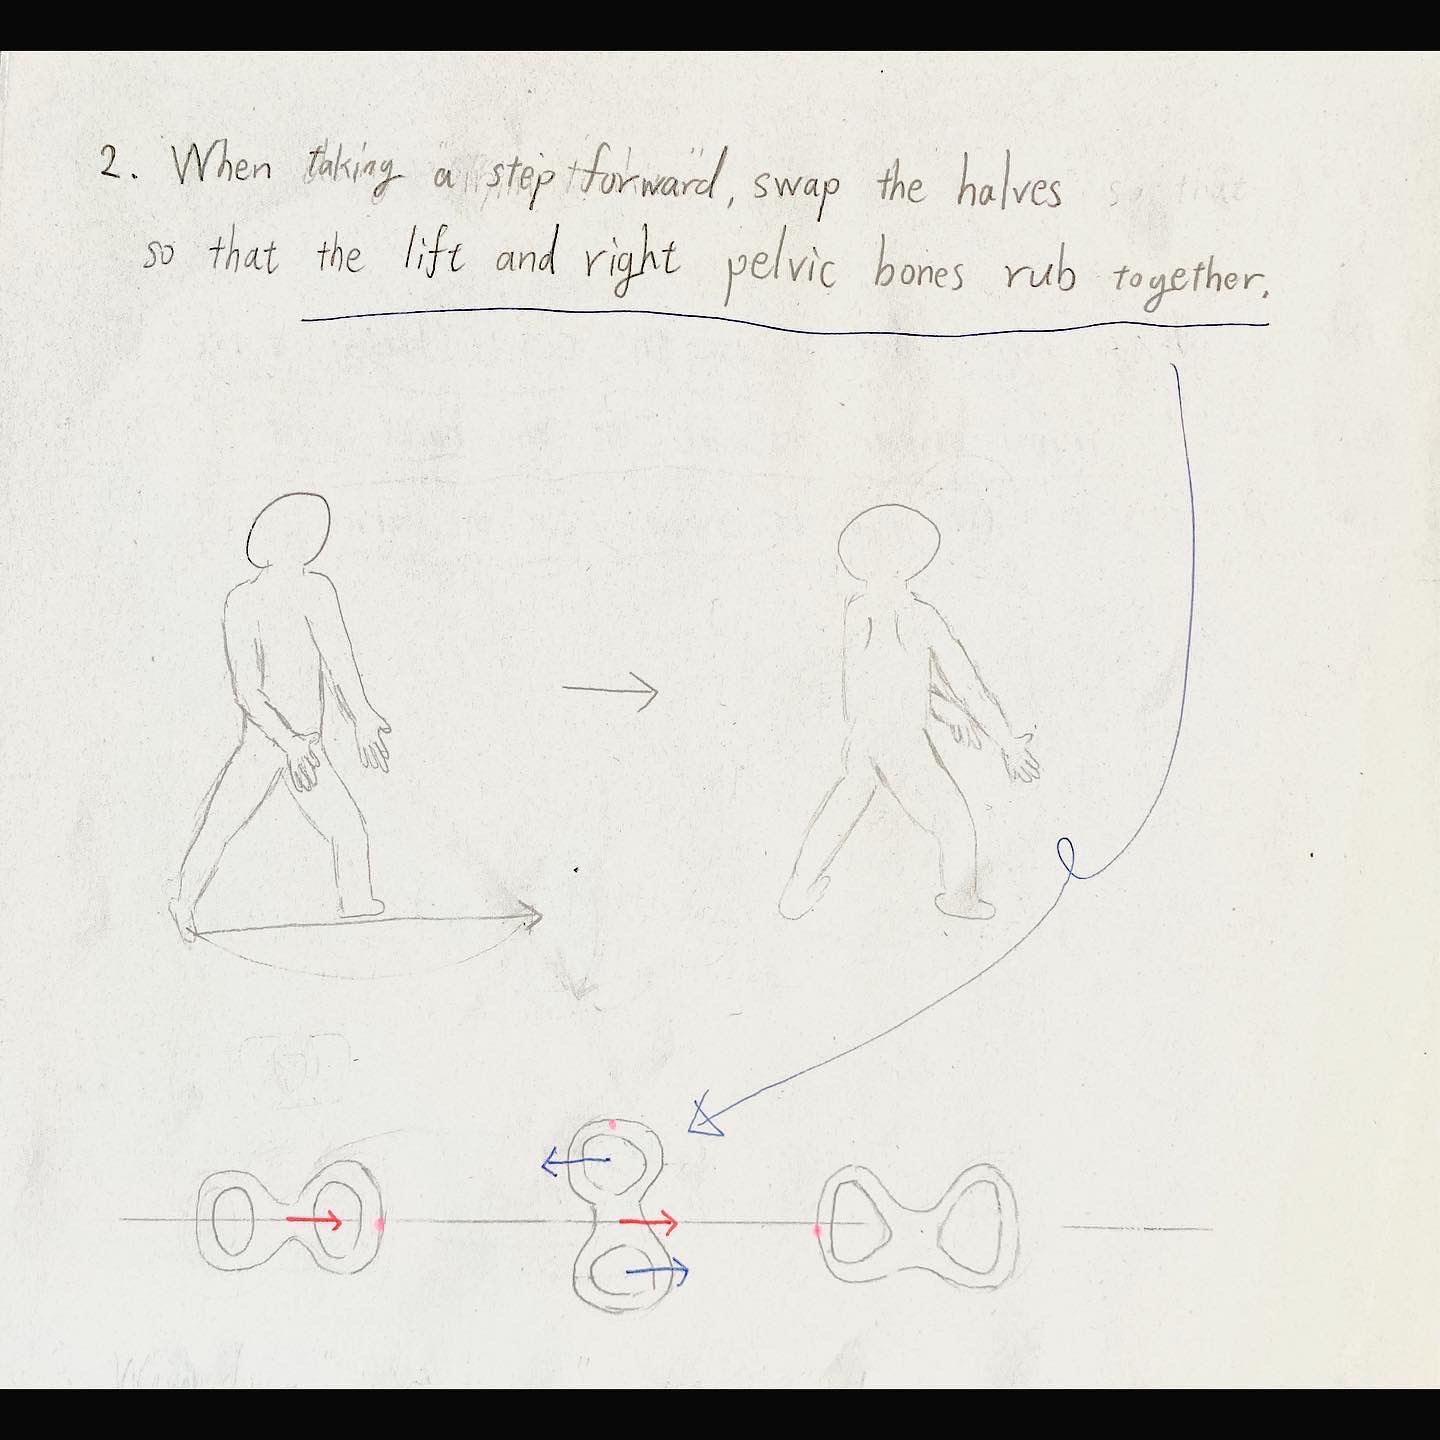 2. When taking a step forward, swap the halves
so that the lift and right pelvic bones rub together.